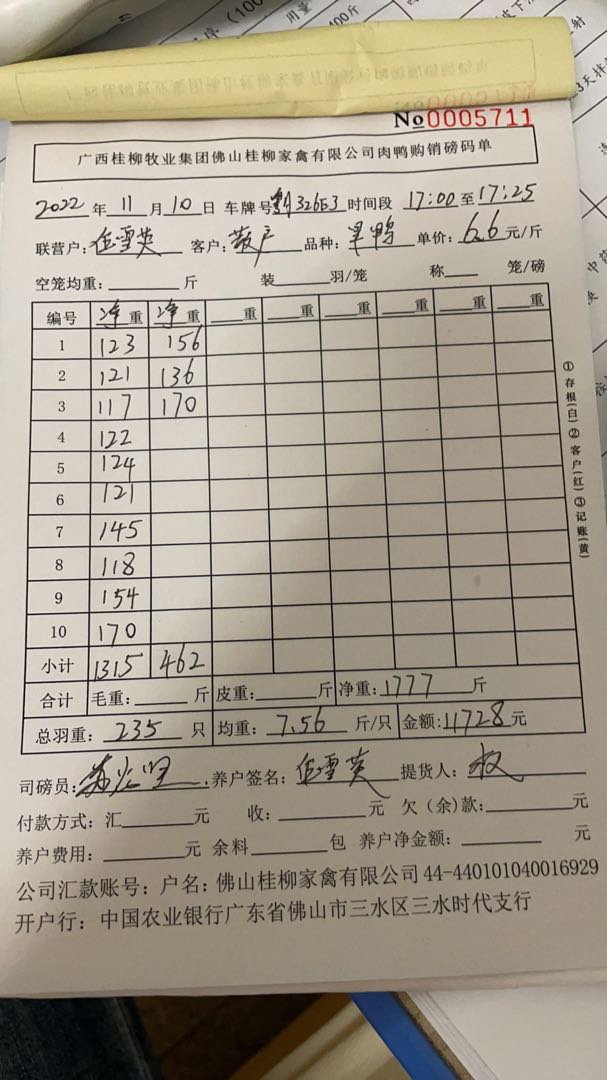 No 0005711
广西桂柳牧业集团佛山桂柳家禽有限公司肉鸭购销磅码单
2022 年 11 月 10 日 车牌号 326E3 时间段 17:00 至 17:25
联营户: 伍雪英 客户: 散户 品种: 旱鸭 单价: 6.6 元/斤
空笼均重: 斤 装 羽/笼 称 笼/磅
编号 净重 净重 重 重 重 重 重
1 123 156
2 121 136
3 117 170
4 122
5 124
6 121
7 145
8 118
9 154
10 170
小计 1315 462
合计 毛重: 斤 皮重: 斤 净重: 1777 斤
总羽重: 235 只 均重: 7.56 斤/只 金额: 11728 元
司磅员: 养户签名: 伍雪英 提货人: 权
付款方式: 汇 元 收: 元 欠(余)款: 元
养户费用: 元 余料 包 养户净金额: 元
公司汇款账号: 户名: 佛山桂柳家禽有限公司 44-440101040016929
开户行: 中国农业银行广东省佛山市三水区三水时代支行
①存根(白)②客户(红)③记账(黄)